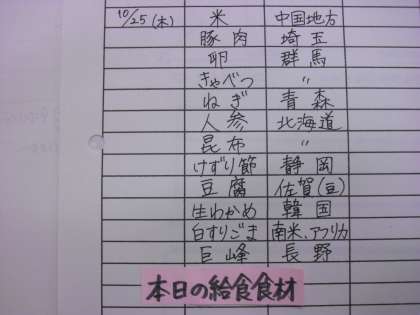 10/25(木) 米 中国地方
豚肉 埼玉
卵 群馬
きゃべつ 〃
ねぎ 青森
人参 北海道
昆布 〃
けずり節 静岡
豆腐 佐賀(豆)
生わかめ 韓国
白すりごま 南米、アフリカ
巨峰 長野
本日の給食食材